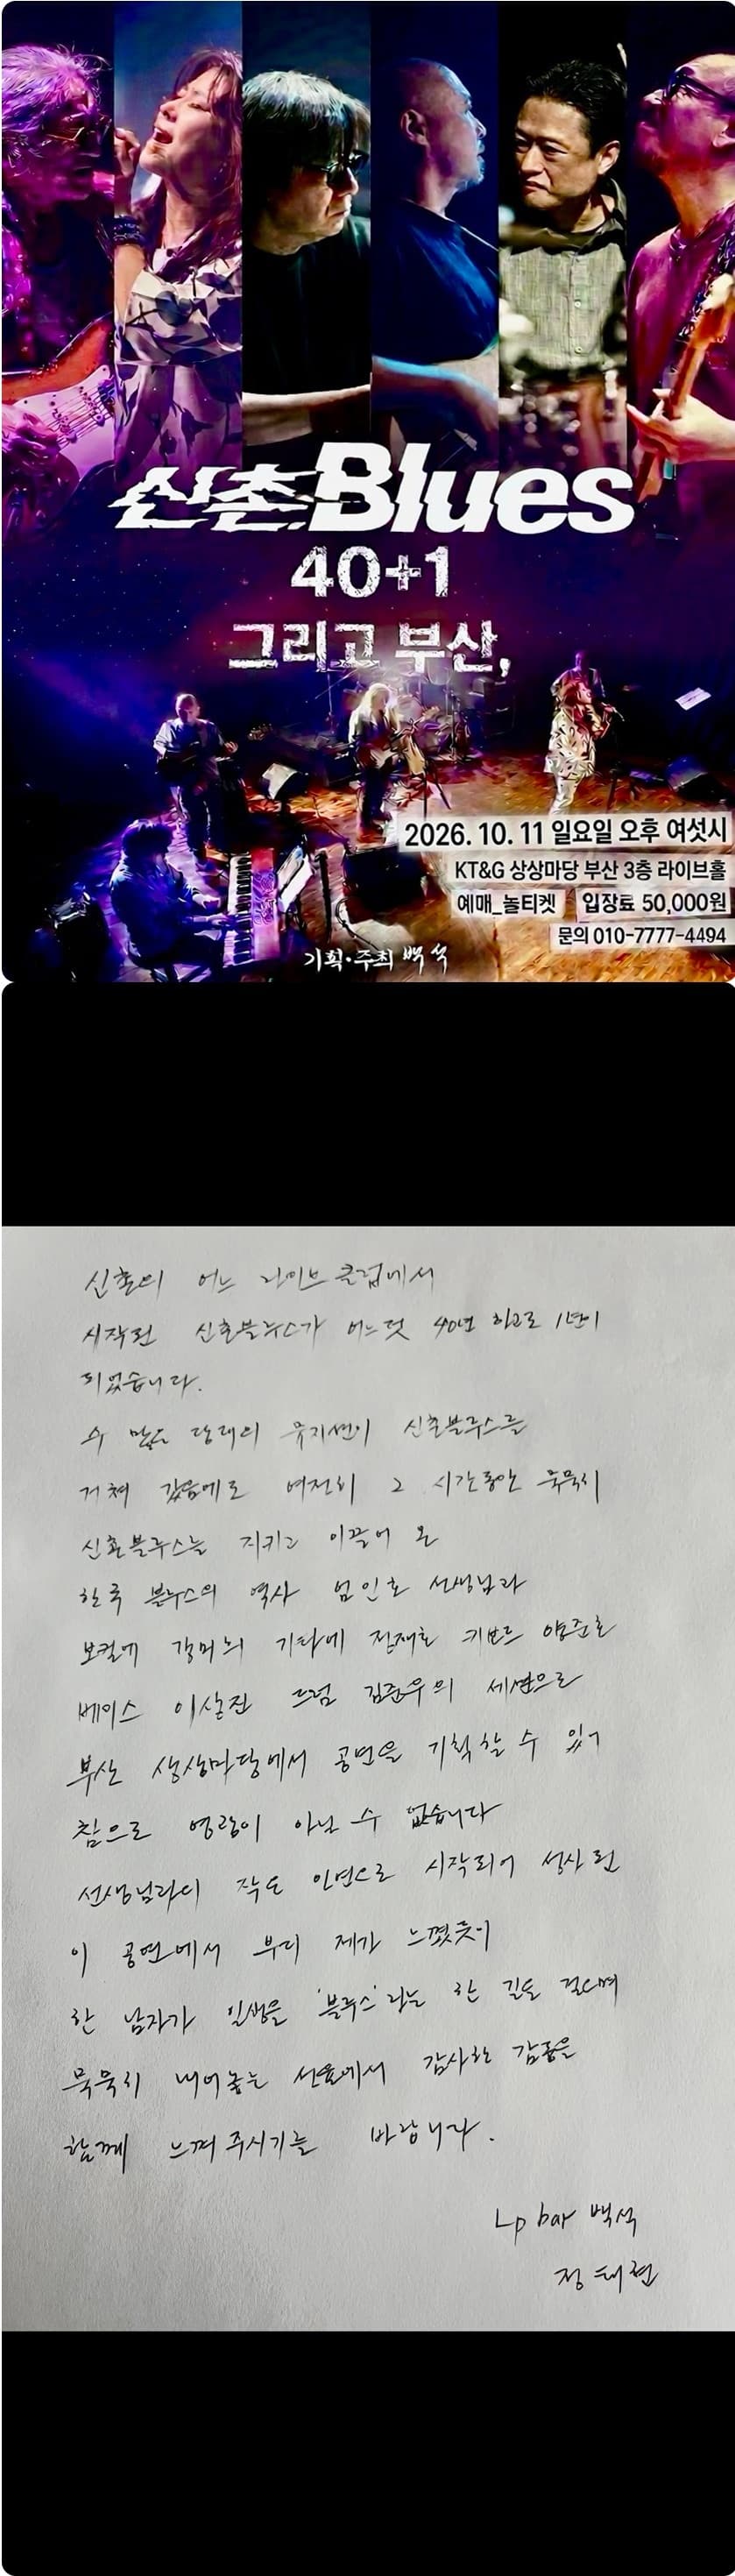 신촌Blues
40+1
그리고 부산,
2026. 10. 11 일요일 오후 여섯시
KT&G 상상마당 부산 3층 라이브홀
예매_놀티켓 입장료 50,000원
문의 010-7777-4494
기획·주최 백석
신촌의 어느 라이브 클럽에서
시작된 신촌블루스가 어느덧 40년 하고도 1년이
되었습니다.
수 많은 당대의 뮤지션이 신촌블루스를
거쳐 갔음에도 여전히 그 시간동안 묵묵히
신촌블루스를 지키고 이끌어 온
한국 블루스의 역사 엄인호 선생님과
보컬에 강미희 기타에 전재호 키보드 양준호
베이스 이상진 드럼 김준우의 세션으로
부산 상상마당에서 공연을 기획할 수 있어
참으로 영광이 아닐 수 없습니다
선생님과의 작은 인연으로 시작되어 성사 된
이 공연에서 부디 제가 느꼈듯이
한 남자가 일생을 '블루스'라는 한 길을 걸으며
묵묵히 내어놓는 선율에서 감사한 감동을
함께 느껴 주시기를 바랍니다.
Lp bar 백석
정태현